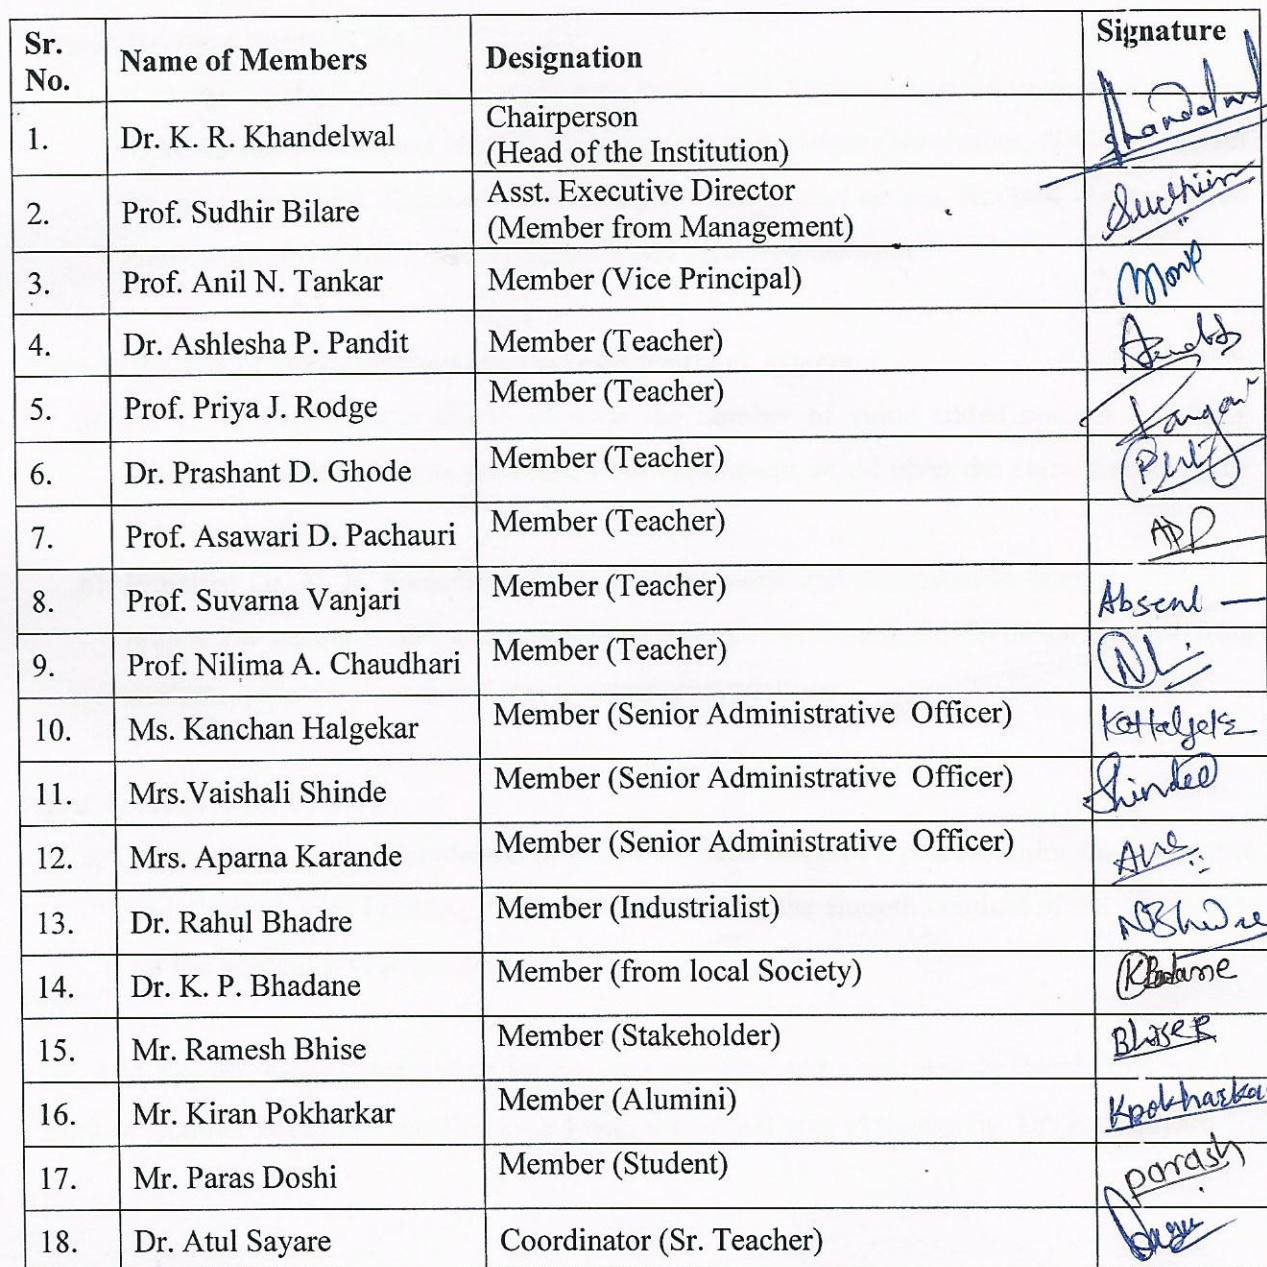 Sr. No. Name of Members Designation Signature
1. Dr. K. R. Khandelwal Chairperson
(Head of the Institution)
2. Prof. Sudhir Bilare Asst. Executive Director
(Member from Management)
3. Prof. Anil N. Tankar Member (Vice Principal)
4. Dr. Ashlesha P. Pandit Member (Teacher)
5. Prof. Priya J. Rodge Member (Teacher)
6. Dr. Prashant D. Ghode Member (Teacher)
7. Prof. Asawari D. Pachauri Member (Teacher) ADP
8. Prof. Suvarna Vanjari Member (Teacher) Absent —
9. Prof. Nilima A. Chaudhari Member (Teacher)
10. Ms. Kanchan Halgekar Member (Senior Administrative Officer)
11. Mrs.Vaishali Shinde Member (Senior Administrative Officer)
12. Mrs. Aparna Karande Member (Senior Administrative Officer)
13. Dr. Rahul Bhadre Member (Industrialist)
14. Dr. K. P. Bhadane Member (from local Society)
15. Mr. Ramesh Bhise Member (Stakeholder) BhiseR
16. Mr. Kiran Pokharkar Member (Alumini) Kpokharkar
17. Mr. Paras Doshi Member (Student) parash
18. Dr. Atul Sayare Coordinator (Sr. Teacher)